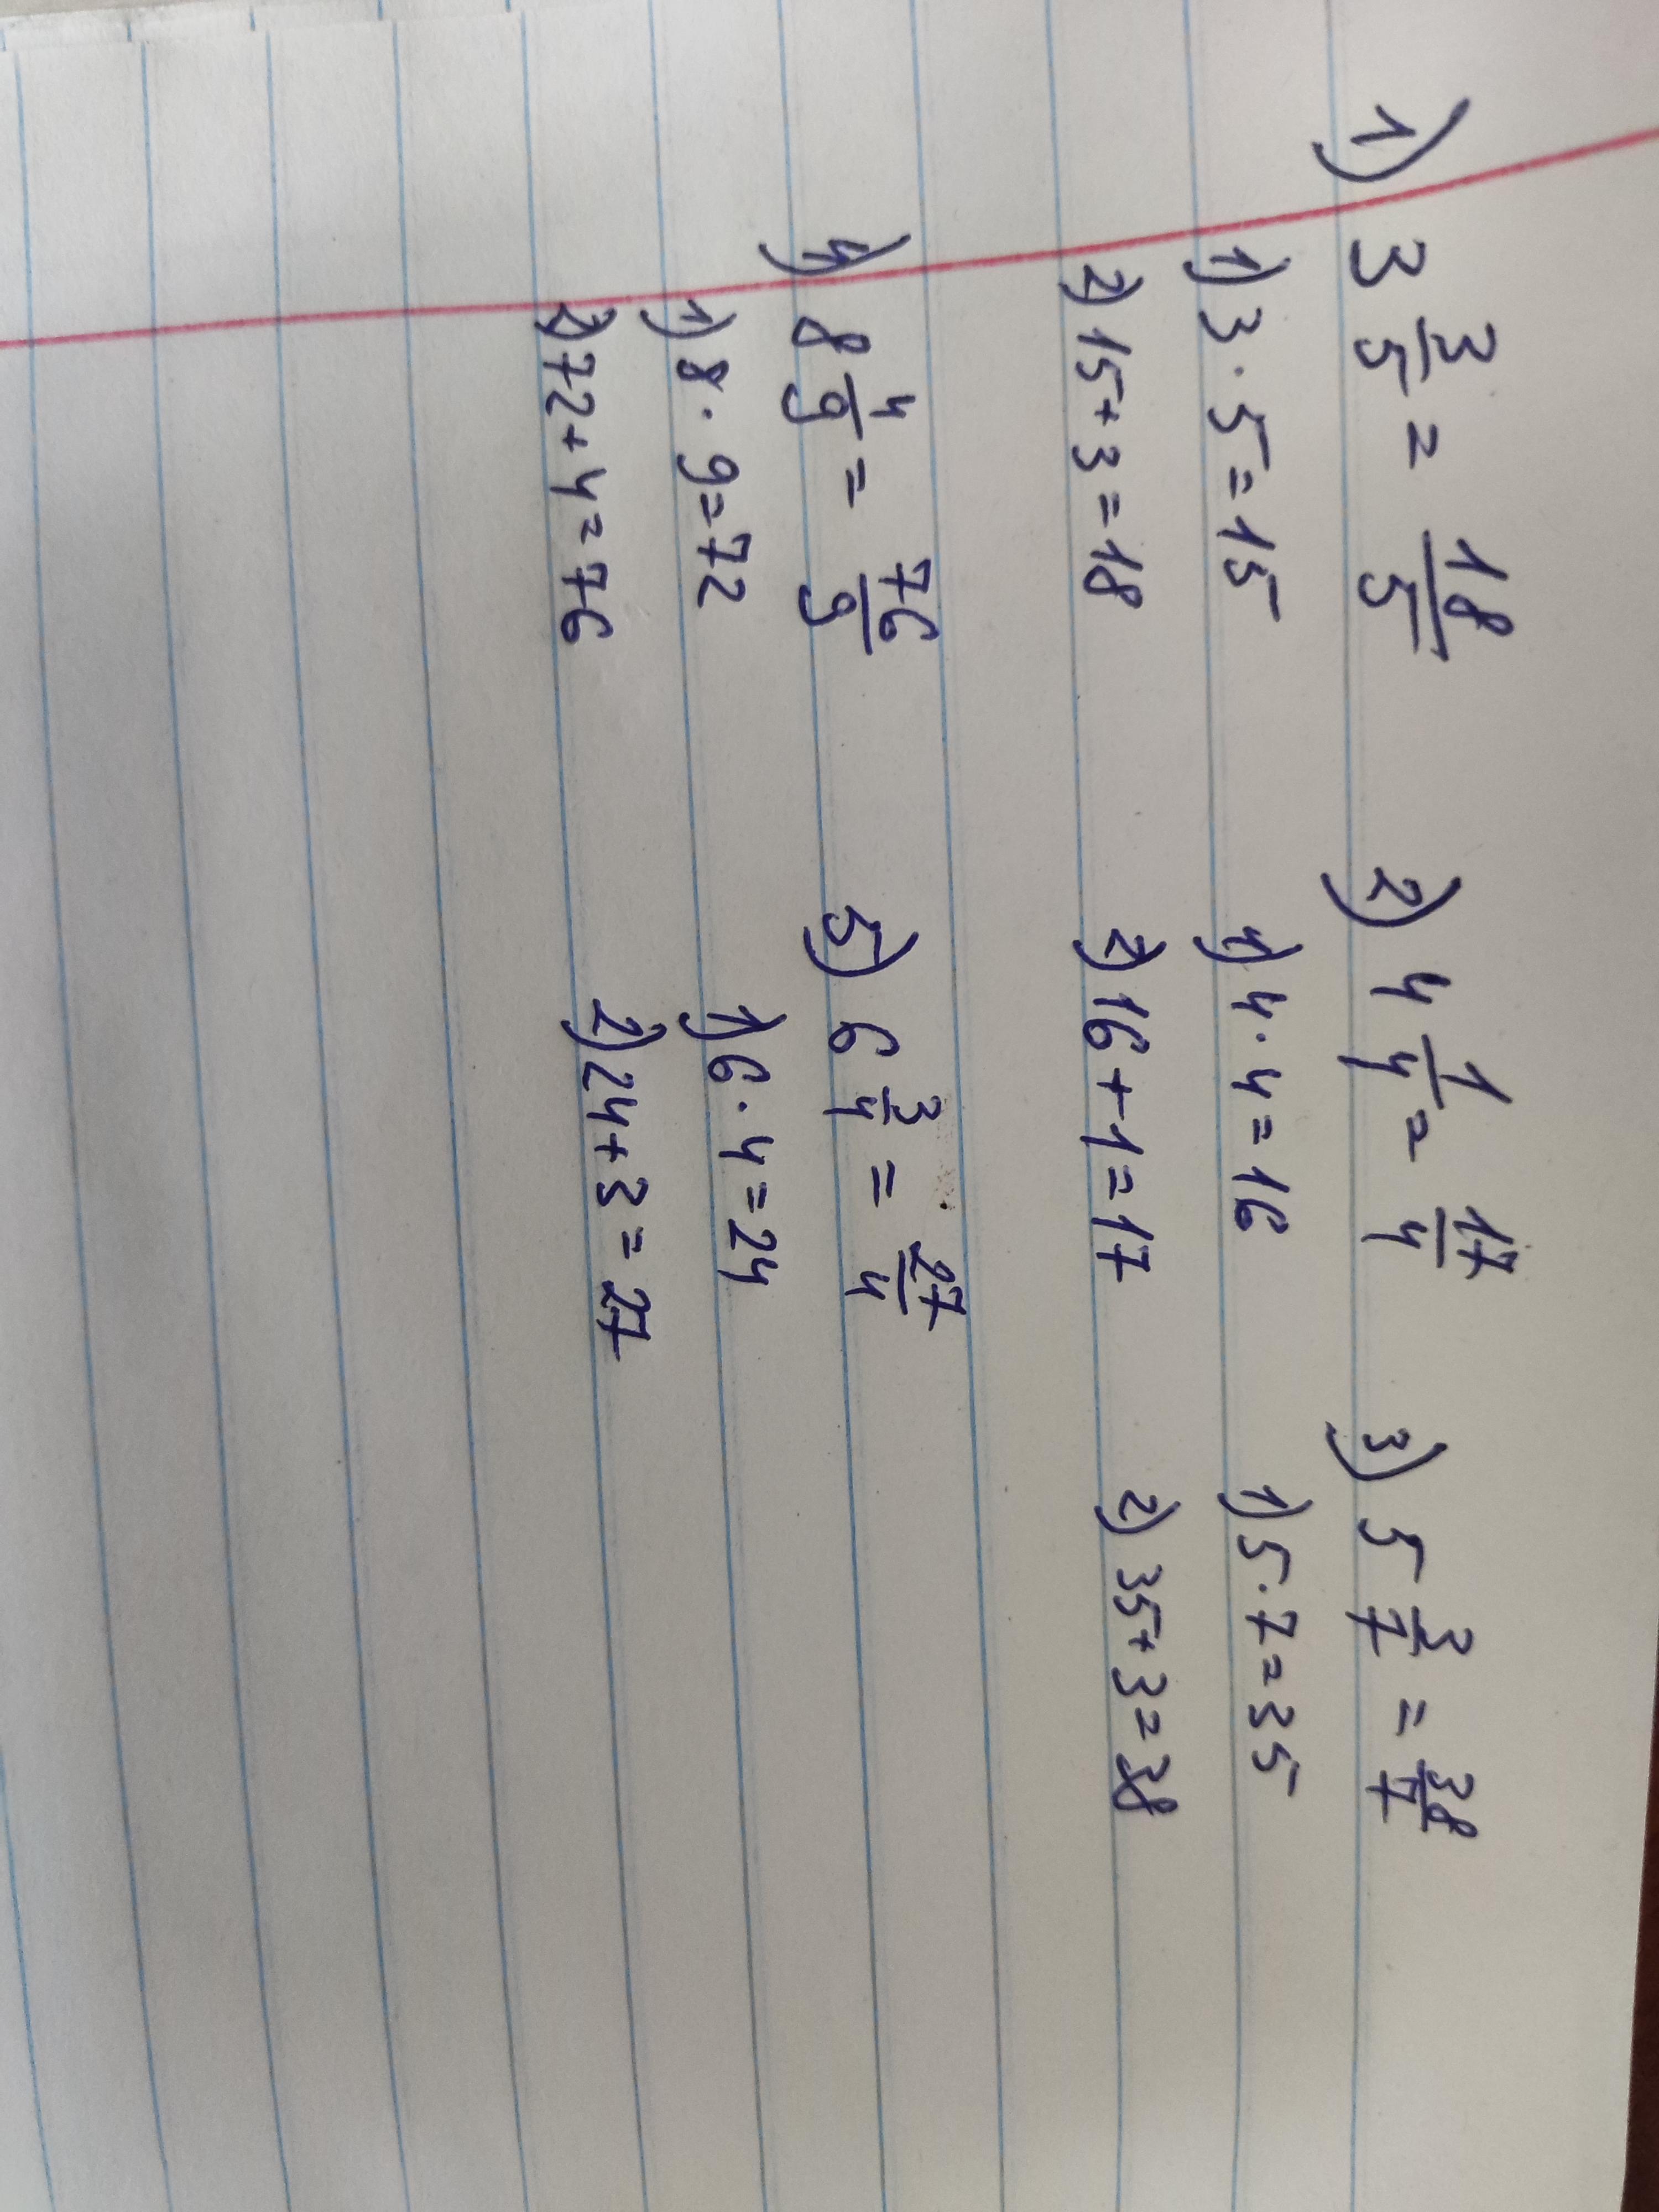 1) 3 3/5 = 18/5 2) 4 1/4 = 17/4 3) 5 3/7 = 38/7
1) 3 · 5 = 15 1) 4 · 4 = 16 1) 5 · 7 = 35
2) 15 + 3 = 18 2) 16 + 1 = 17 2) 35 + 3 = 38
4) 8 4/9 = 76/9 5) 6 3/4 = 27/4
1) 8 · 9 = 72 1) 6 · 4 = 24
2) 72 + 4 = 76 2) 24 + 3 = 27